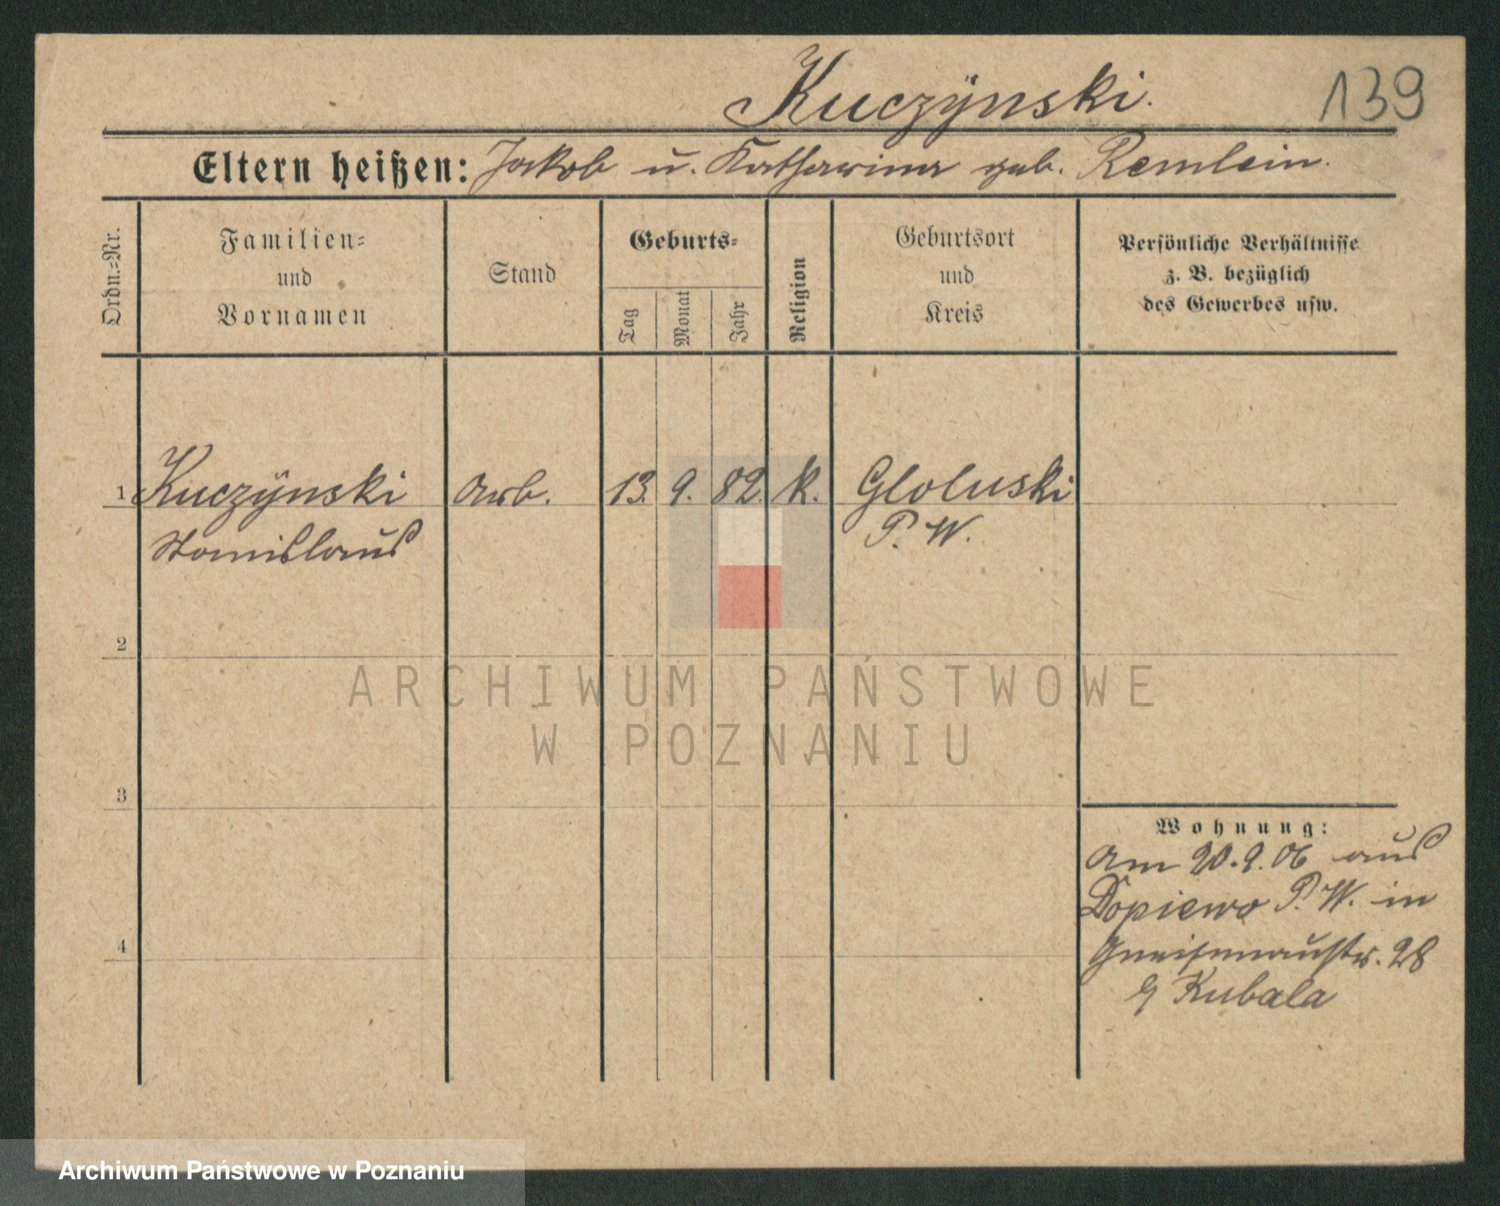 Kuczÿnski.
139
Eltern heißen: Jakob u. Katharina geb. Remlein.
Ordn.-Nr.
Familien-
und
Vornamen
Stand
Geburts-
Tag
Monat
Jahr
Religion
Geburtsort
und
Kreis
Persönliche Verhältnisse
z. B. bezüglich
des Gewerbes usw.
1 Kuczÿnski Arb. 13. 9. 82. k. Gloluski
Stanislaus P. W.
2
ARCHIWUM PAŃSTWOWE
W POZNANIU
3
Wohnung:
Am 20.9.06 aus
Dopiewo P. W. in
4
Gneisenaustr. 28
Kubala
Archiwum Państwowe w Poznaniu